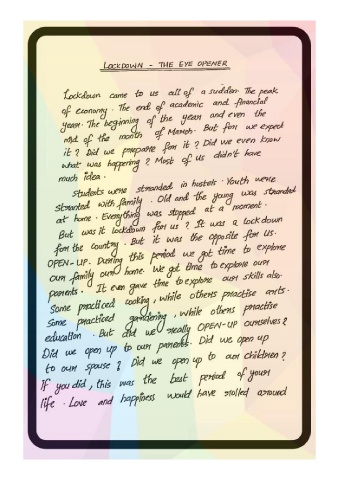 LOCKDOWN - THE EYE OPENER
Lockdown came to us all of a sudden. The peak
of economy. The end of academic and financial
year. The beginning of the year and even the
mid of the month of March. But for we expect
it? Did we prepare for it? Did we even know
what was happening? Most of us didn't have
much idea.
Students were stranded in hostels. Youth were
stranted with family. Old and the young was stranded
at home. Everything was stopped at a moment.
But was it lockdown for us? It was a lockdown
for the country. But it was the opposite for us.
OPEN-UP. During this period we got time to explore
our family our home. We got time to explore our
parents. It even gave time to explore our skills also.
Some practiced cooking, while others practise arts.
Some practiced gardering, while others practise
education. But did we really OPEN-UP ourselves?
Did we open up to our parents. Did we open up
to our spouse? Did we open up to our children?
If you did, this was the best period of your
life. Love and happiness would have rolled around